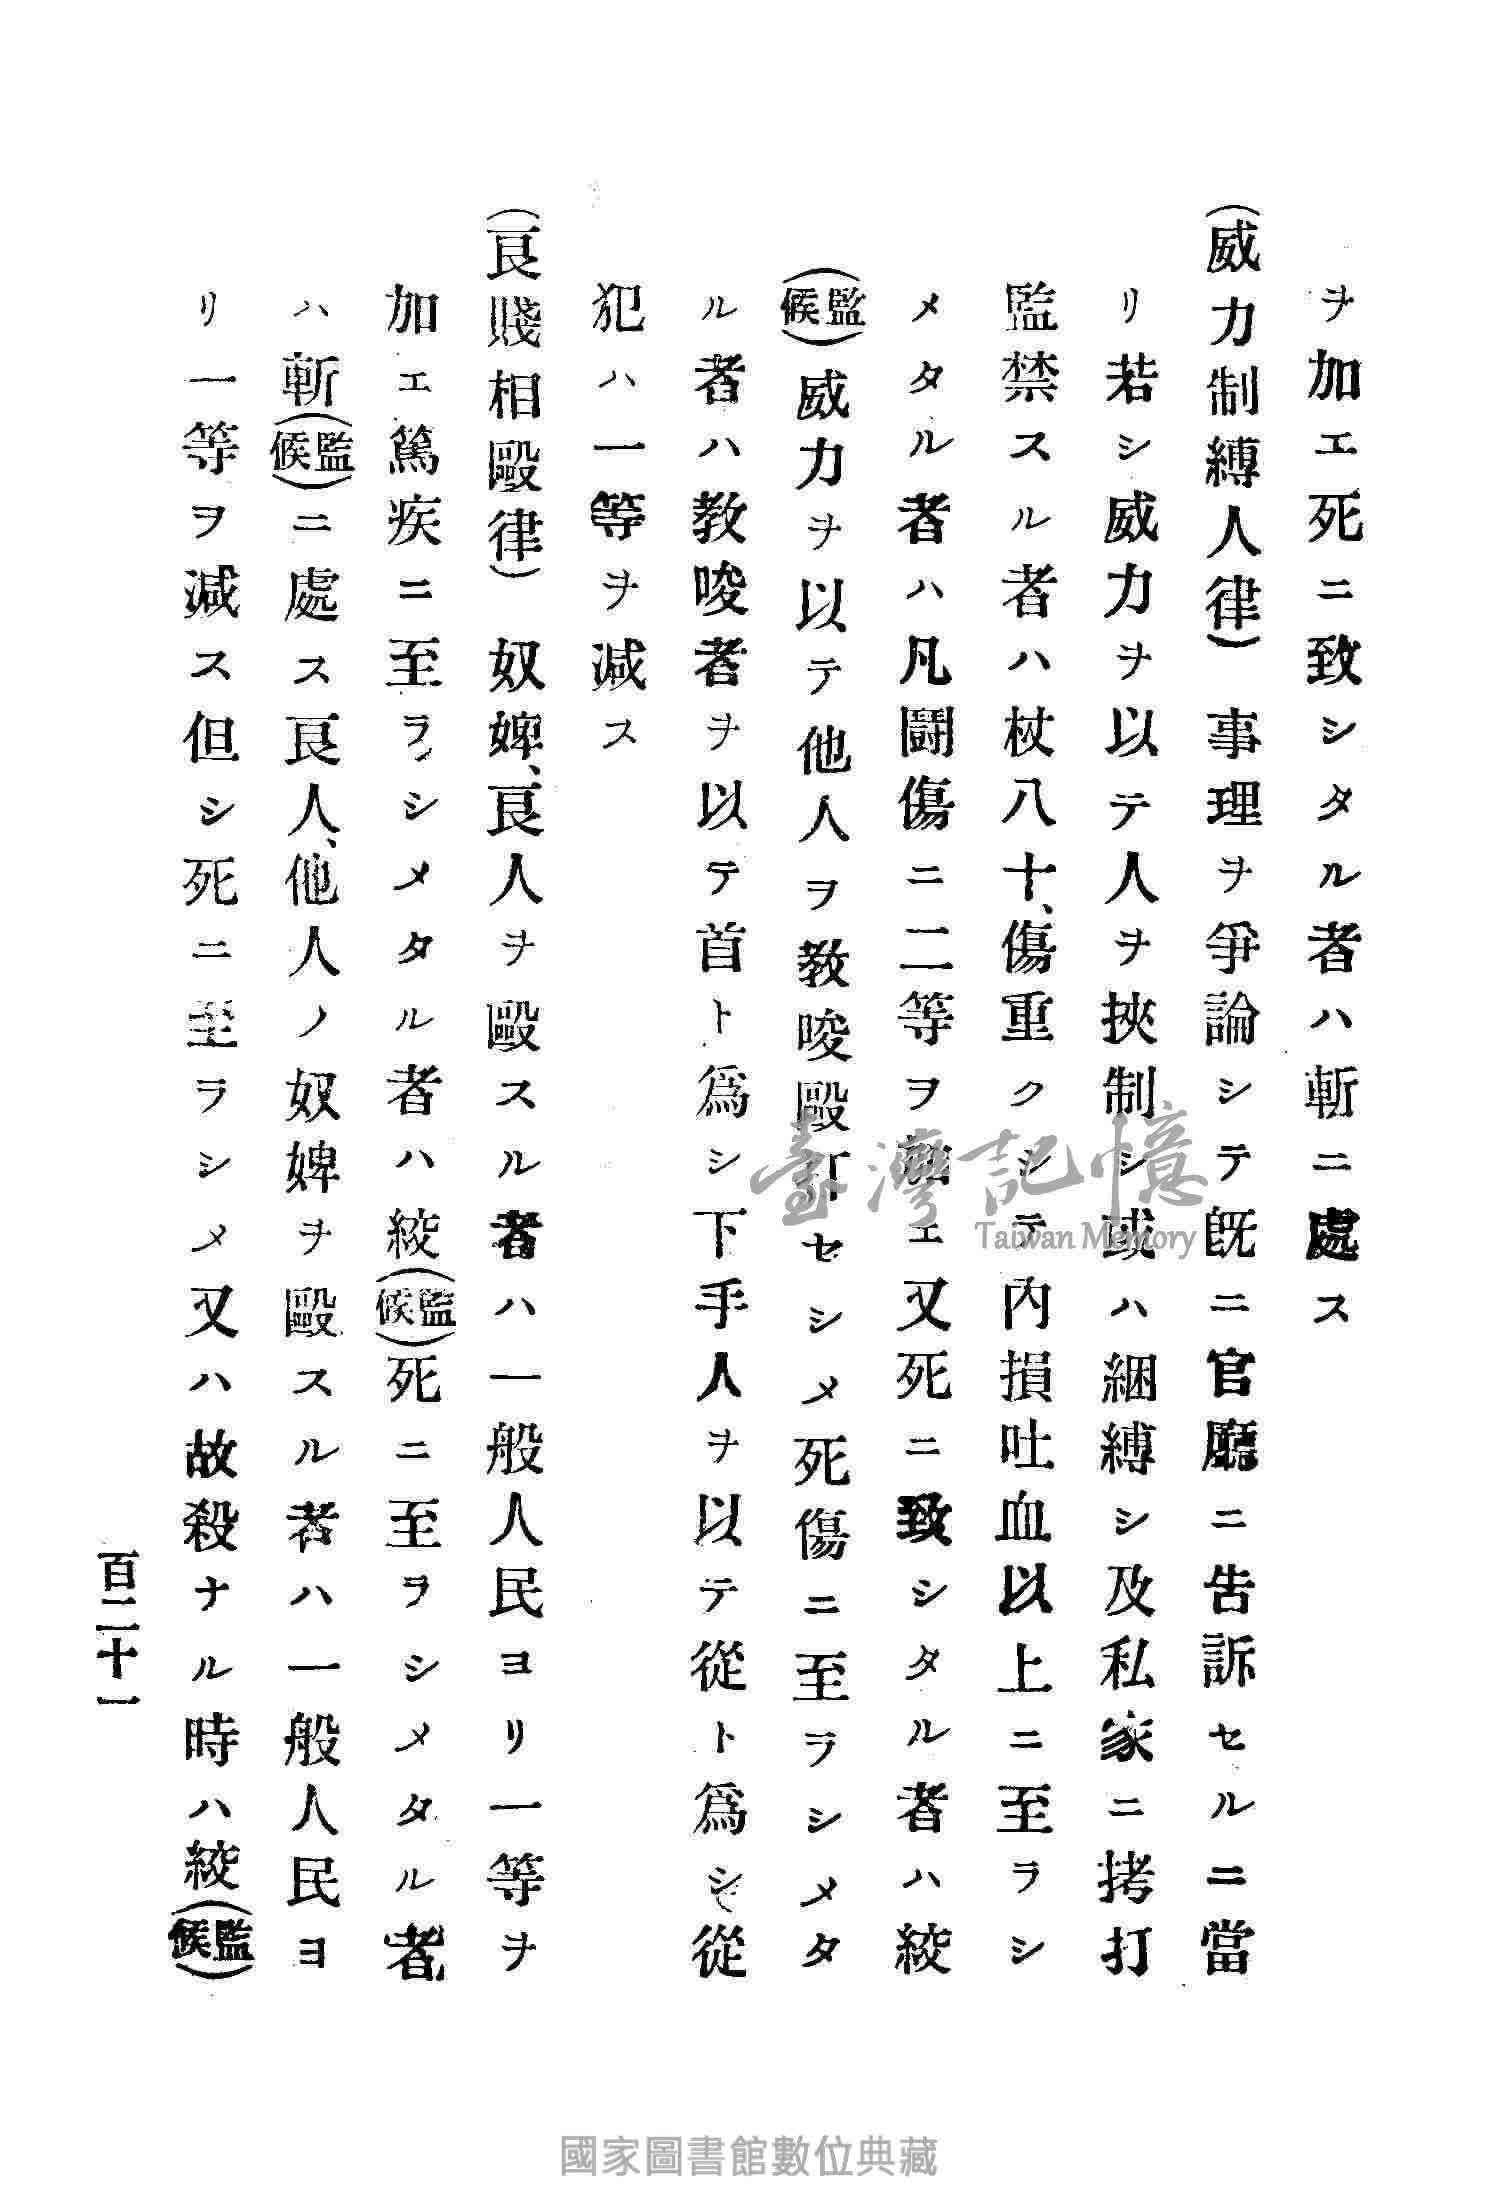 ヲ加エ死ニ致シタル者ハ斬ニ處ス
(威力制縛人律)事理ヲ爭論シテ既ニ官廳ニ告訴セルニ當
リ若シ威力ヲ以テ人ヲ挾制シ或ハ綑縛シ及私家ニ拷打
監禁スル者ハ杖八十、傷重クシテ內損吐血以上ニ至ラシ
メタル者ハ凡鬪傷ニ二等ヲ加エ又死ニ致シタル者ハ絞
(監候)威力ヲ以テ他人ヲ教唆毆打セシメ死傷ニ至ラシメタ
ル者ハ教唆者ヲ以テ首ト爲シ下手人ヲ以テ從ト爲シ從
犯ハ一等ヲ減ス
(良賤相毆律)奴婢、良人ヲ毆スル者ハ一般人民ヨリ一等ヲ
加エ篤疾ニ至ラシメタル者ハ絞(監候)死ニ至ラシメタル者
ハ斬(監候)ニ處ス良人、他人ノ奴婢ヲ毆スル者ハ一般人民ヨ
リ一等ヲ減ス但シ死ニ至ラシメ又ハ故殺ナル時ハ絞(監候)
百二十一
臺灣記憶
Taiwan Memory
國家圖書館數位典藏